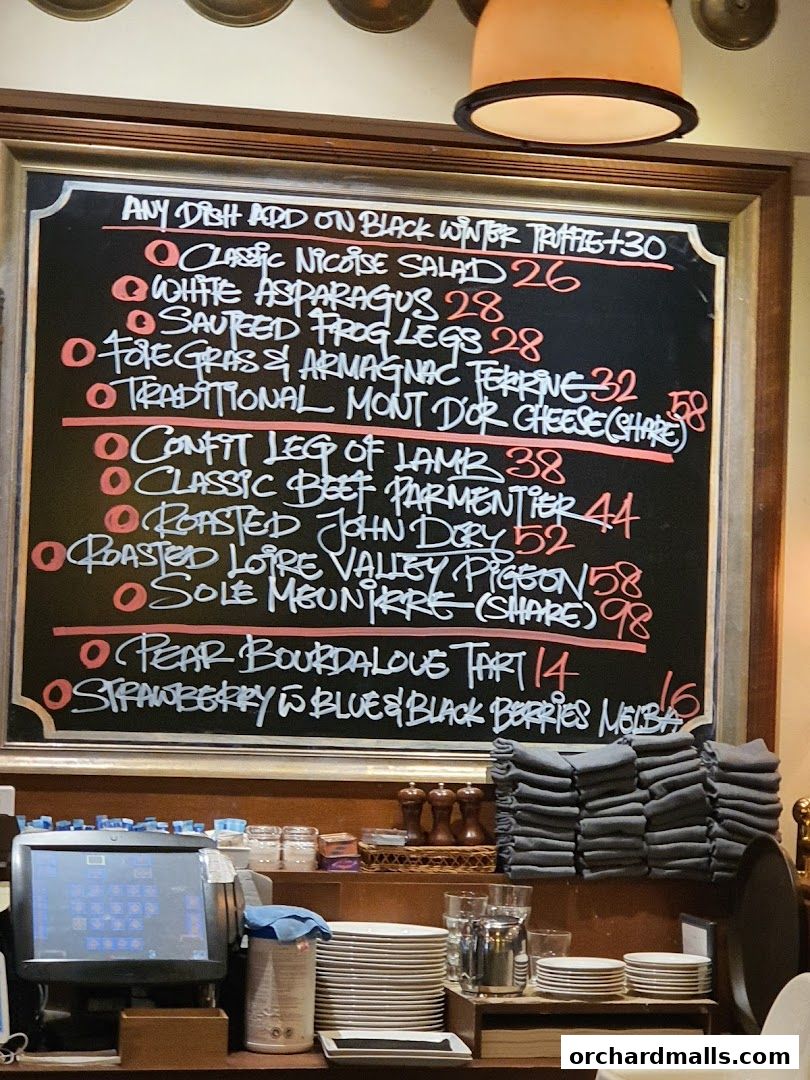 ANY DISH ADD ON BLACK WINTER TRUFFLE +30
CLASSIC NICOISE SALAD 26
WHITE ASPARAGUS 28
SAUTEED FROG LEGS 28
FOIE GRAS & ARMAGNAC TERRINE 32
TRADITIONAL MONT D'OR CHEESE (SHARE) 58
CONFIT LEG OF LAMB 38
CLASSIC BEEF PARMENTIER 44
ROASTED JOHN DORY 52
ROASTED LOIRE VALLEY PIGEON 58
SOLE MEUNIERE (SHARE) 98
PEAR BOURDALOUE TART 14
STRAWBERRY W BLUE & BLACK BERRIES MELBA 16
orchardmalls.com